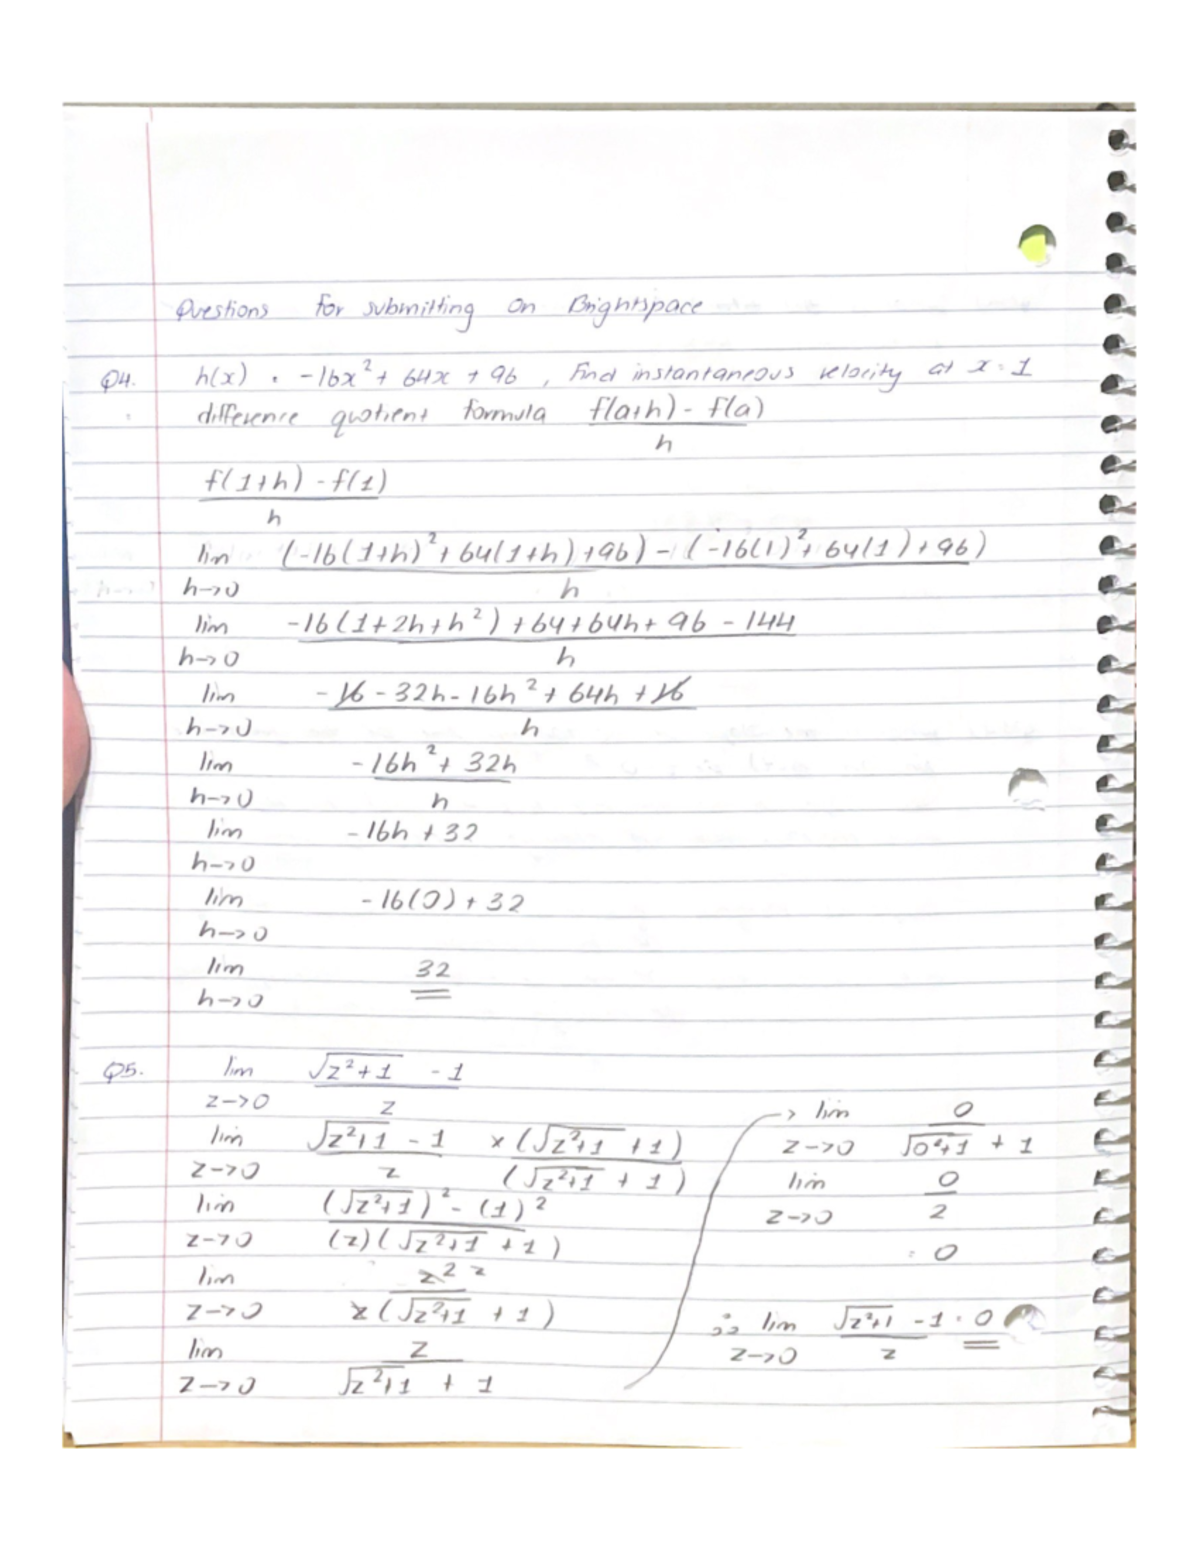 Questions for submitting on Brightspace
Q4. h(x) = -16x² + 64x + 96 , Find instantaneous velocity at x = 1
difference quotient formula f(a+h) - f(a)
h
f(1+h) - f(1)
h
lim (-16(1+h)² + 64(1+h) + 96) - (-16(1)² + 64(1) + 96)
h→0 h
lim -16(1+2h+h²) + 64 + 64h + 96 - 144
h→0 h
lim -16 - 32h - 16h² + 64h + 16
h→0 h
lim -16h² + 32h
h→0 h
lim -16h + 32
h→0
lim -16(0) + 32
h→0
lim 32
h→0
Q5. lim √z²+1 - 1
z→0 z
lim √z²+1 - 1 × (√z²+1 + 1)
z→0 z (√z²+1 + 1)
lim (√z²+1)² - (1)²
z→0 (z)(√z²+1 + 1)
lim z² z
z→0 z(√z²+1 + 1)
lim z
z→0 √z²+1 + 1
→ lim 0
z→0 √0²+1 + 1
lim 0
z→0 2
= 0
∴ lim √z²+1 - 1 = 0
z→0 z